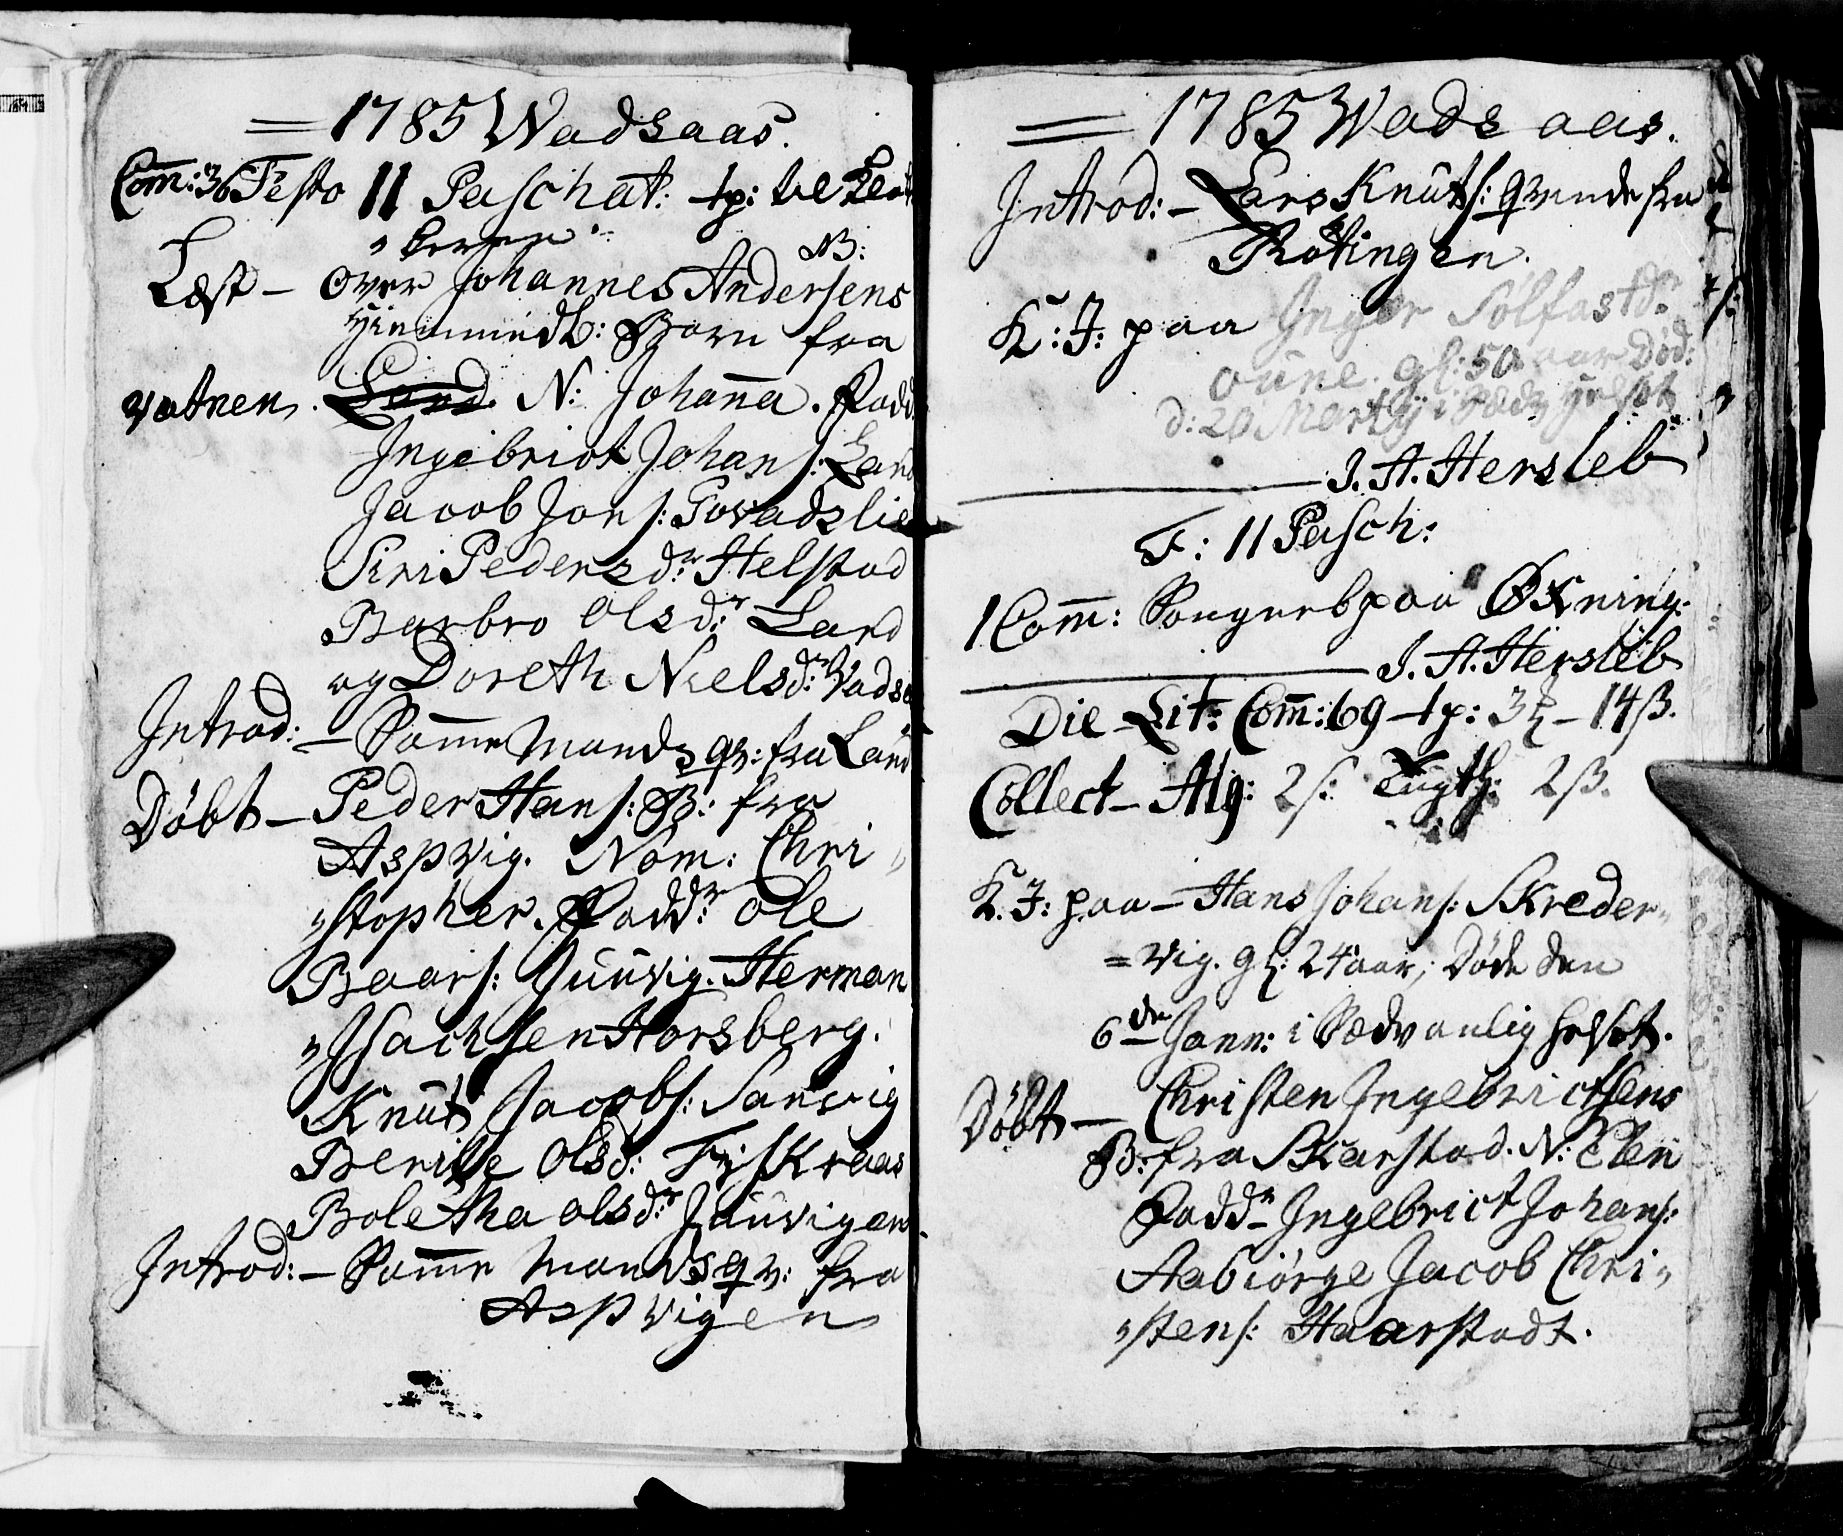 = 1785 Wadsaas.
Com̄: 36 Festo II Paschat: tp:
NB:
Læst – over Johannes Andersens
Hiemmedb: Barn fra
Vatnen. Land. N: Johan̄a. Fadd.
Ingebrict Johans: Land
Jacob Jons:
Siri Pedersd.r Helstad
Barbro Olsd.r Land
og Doreth Nielsd.r Vads
Introd: – Sam̄e Mands qv: fra Land
Döbt – Peder Hans: B: fra
Aspvig. Nom: Chri
„stopher. Fadd.r Ole
Baars: Juuvig. Herman
„Isachsen Horsberg.
Knut Jacobs: Sanvig
Berille Olsd: Fiskraas
Boletha olsd.r Juuvigen
Introd: – Sam̄e Mands qv: fra
Aspvigen
= 1785 Wads aas.
Introd: – Lars Knuts: qvinde fra
Røtingen.
K: J: paa Inger Solfastd.r
oune. gl: 50 aar Död:
d: 20 Martÿ i Sædv: Helset
J. A. Hersleb
F: II Pasch:
1 Com̄: Songneb paa Øxning:
J. A. Hersleb
Die Lit: Com̄: 69 tp: 3 – 14 ß.
Collect – Alg: 2 s: Tugth: 2 ß.
K. J: paa – Hans Johans: Skreder„
=vig. gl: 24 aar, Döde den
6 den Janr: i Sædvanlig helset.
Döbt – Christen Ingebrictsens
B: fra Skarstad. N: Elen
Fadd.r Ingebrict Johans:
Aabiörge Jacob Chri„
„stens: Haarstadt.